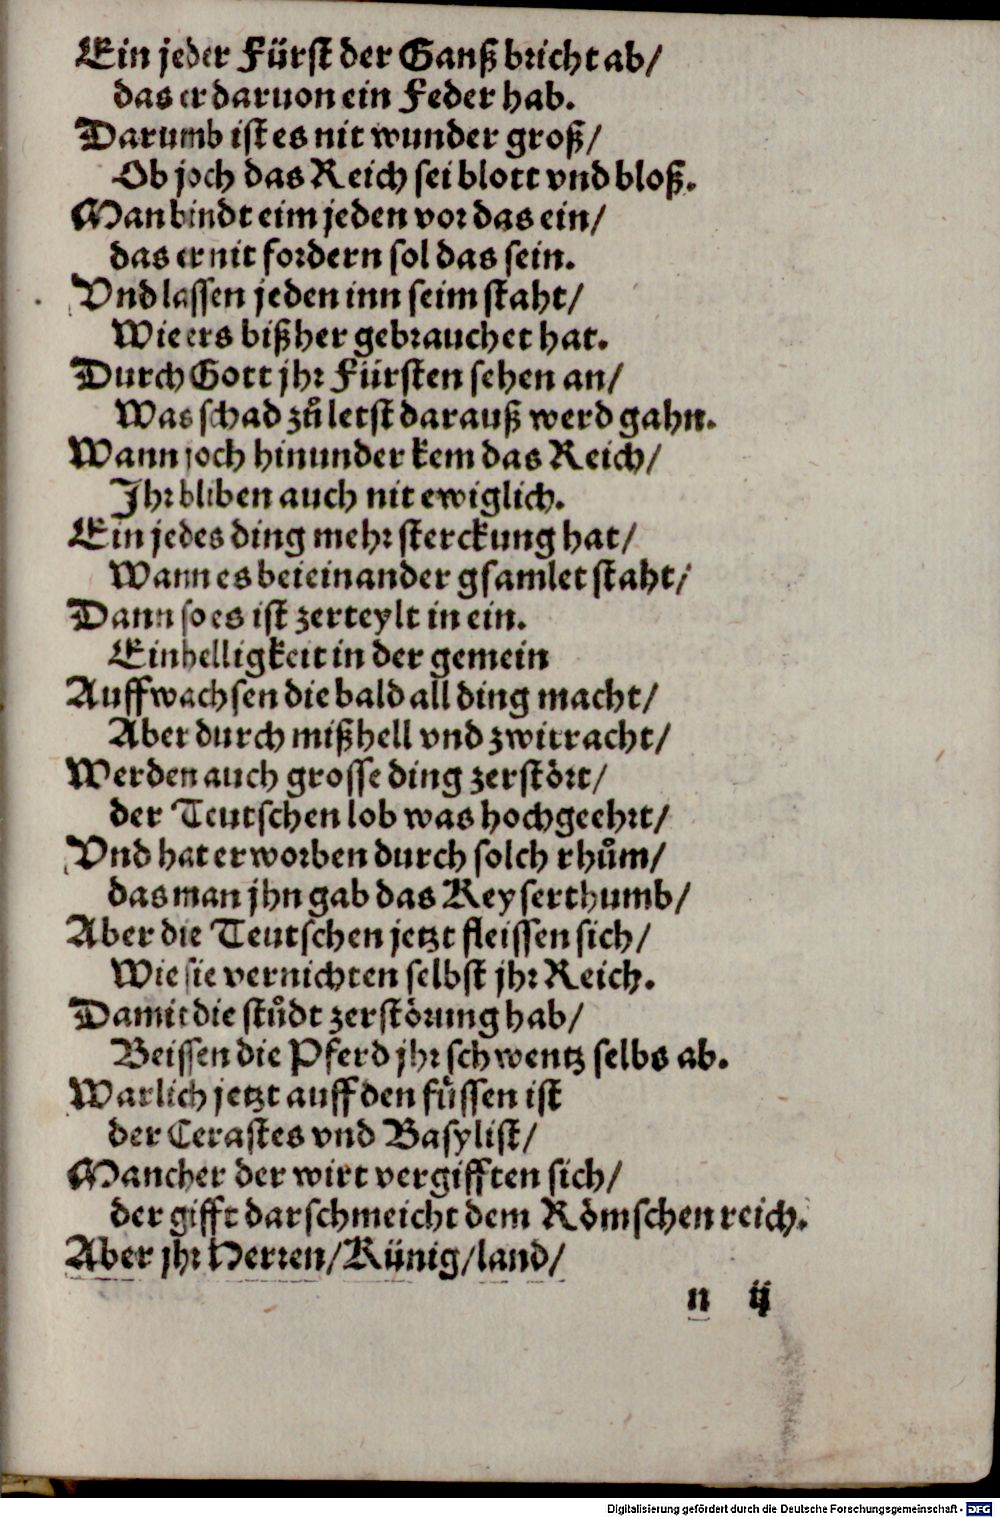 Ein jeder Fürst der Ganß bricht ab/
das er daruon ein Feder hab.
Darumb ist es nit wunder groß/
Ob joch das Reich sei blott vnd bloß.
Man bindt eim jeden vor das ein/
das er nit fordern sol das sein.
Vnd lassen jeden inn seim staht/
Wie ers bißher gebrauchet hat.
Durch Gott jhr Fürsten sehen an/
Was schad zů letst darauß werd gahn.
Wann joch hinunder kem das Reich/
Jhr bliben auch nit ewiglich.
Ein jedes ding mehr sterckung hat/
Wann es beieinander gsamlet staht/
Dann so es ist zerteylt in ein.
Einhelligkeit in der gemein
Auffwachsen die bald all ding macht/
Aber durch mißhell vnd zwitracht/
Werden auch grosse ding zerstört/
der Teutschen lob was hochgeehrt/
Vnd hat erworben durch solch rhům/
das man jhn gab das Keyserthumb/
Aber die Teutschen jetzt fleissen sich/
Wie sie vernichten selbst jhr Reich.
Damit die stůdt zerstörung hab/
Beissen die Pferd jhr schwentz selbs ab.
Warlich jetzt auff den füssen ist
der Cerastes vnd Basylist/
Mancher der wirt vergifften sich/
der gifft dar schmeicht dem Römschen reich.
Aber jhr Herren/Künig/land/
n ij
Digitalisierung gefördert durch die Deutsche Forschungsgemeinschaft - DFG